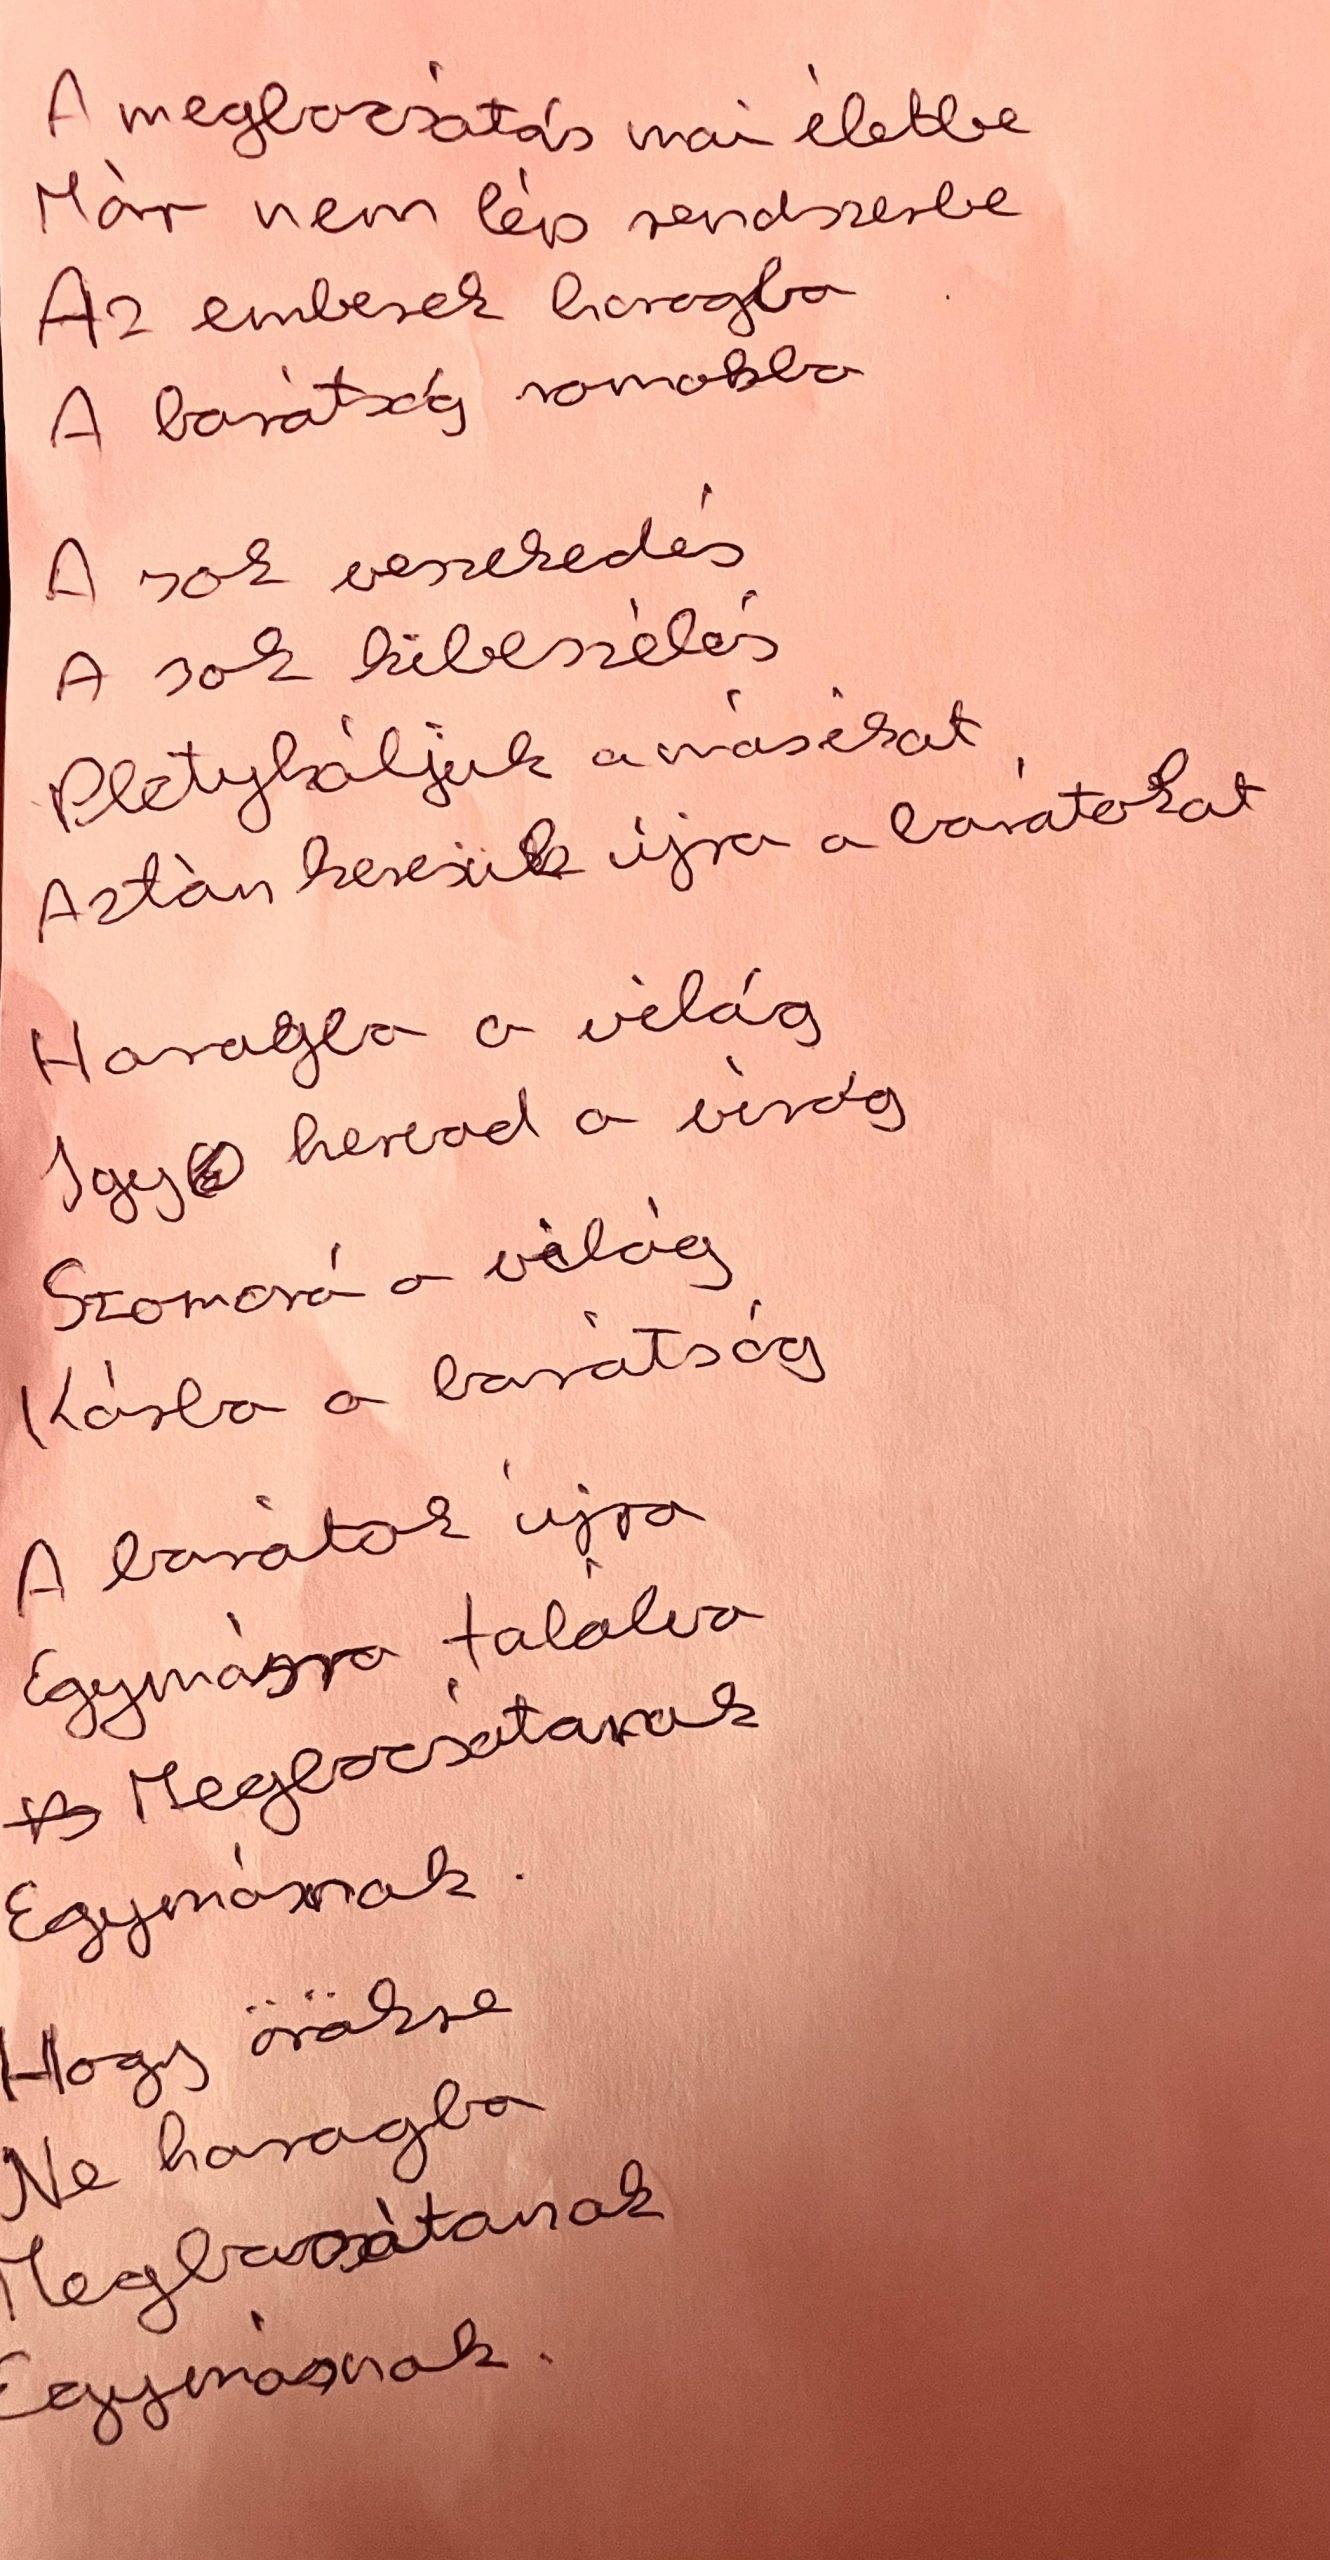 A megbocsátás mai életbe
Már nem lép rendszerbe
Az emberek haragba
A barátság romokba
A sok veszekedés
A sok kibeszélés
Pletykáljuk a másikat
Aztán keresük újra a barátokat
Haragba a világ
Igy hervad a virág
Szomorú a világ
Kárba a barátság
A barátok újra
Egymásra találva
Megbocsátanak
Egymásnak.
Hogy örökre
Ne haragba
Megbocsátanak
Egymásnak.